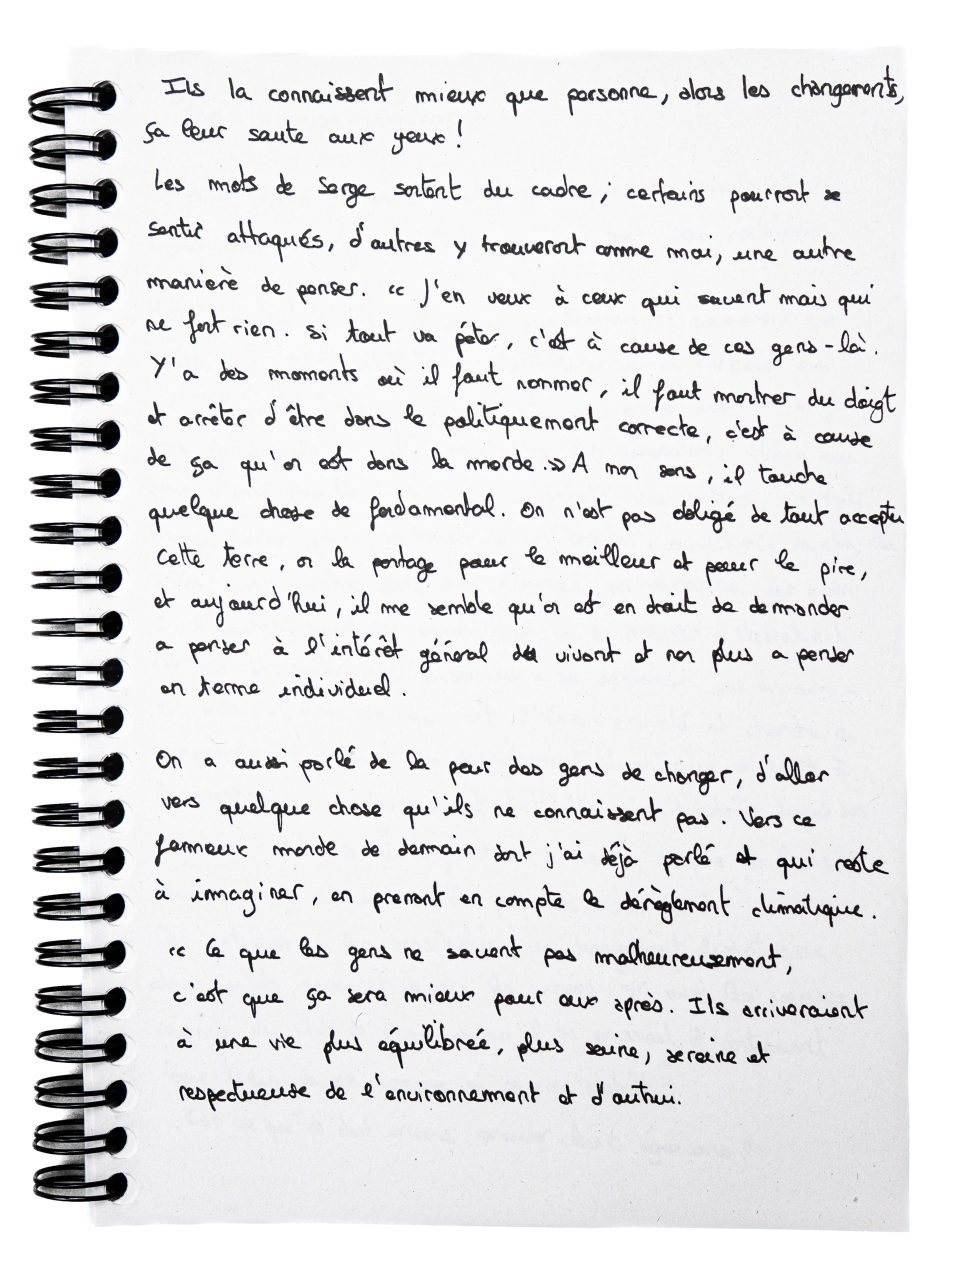 Ils la connaissent mieux que personne, alors les changements,
ça leur saute aux yeux !
Les mots de Serge sortent du cadre ; certains pourront se
sentir attaqués, d'autres y trouveront comme moi, une autre
manière de penser. << J'en veux à ceux qui savent mais qui
ne font rien. Si tout va péter, c'est à cause de ces gens-là.
Y'a des moments où il faut nommer, il faut montrer du doigt
et arrêter d'être dans le politiquement correcte, c'est à cause
de ça qu'on est dans la merde. >> A mon sens, il touche
quelque chose de fondamental. On n'est pas obligé de tout accepter
Cette terre, on la partage pour le meilleur et pour le pire,
et aujourd'hui, il me semble qu'on est en droit de demander
a penser à l'intérêt général du vivant et non plus a penser
en terme individuel.
On a aussi parlé de la peur des gens de changer, d'aller
vers quelque chose qu'ils ne connaissent pas. Vers ce
fammeux monde de demain dont j'ai déjà parlé et qui reste
à immaginer, en prenant en compte le dérèglement climatique.
<< Ce que les gens ne savent pas malheureusement,
c'est que ça sera mieux pour eux après. Ils arriveraient
à une vie plus équilibrée, plus saine, sereine et
respectueuse de l'environnement et d'autrui.